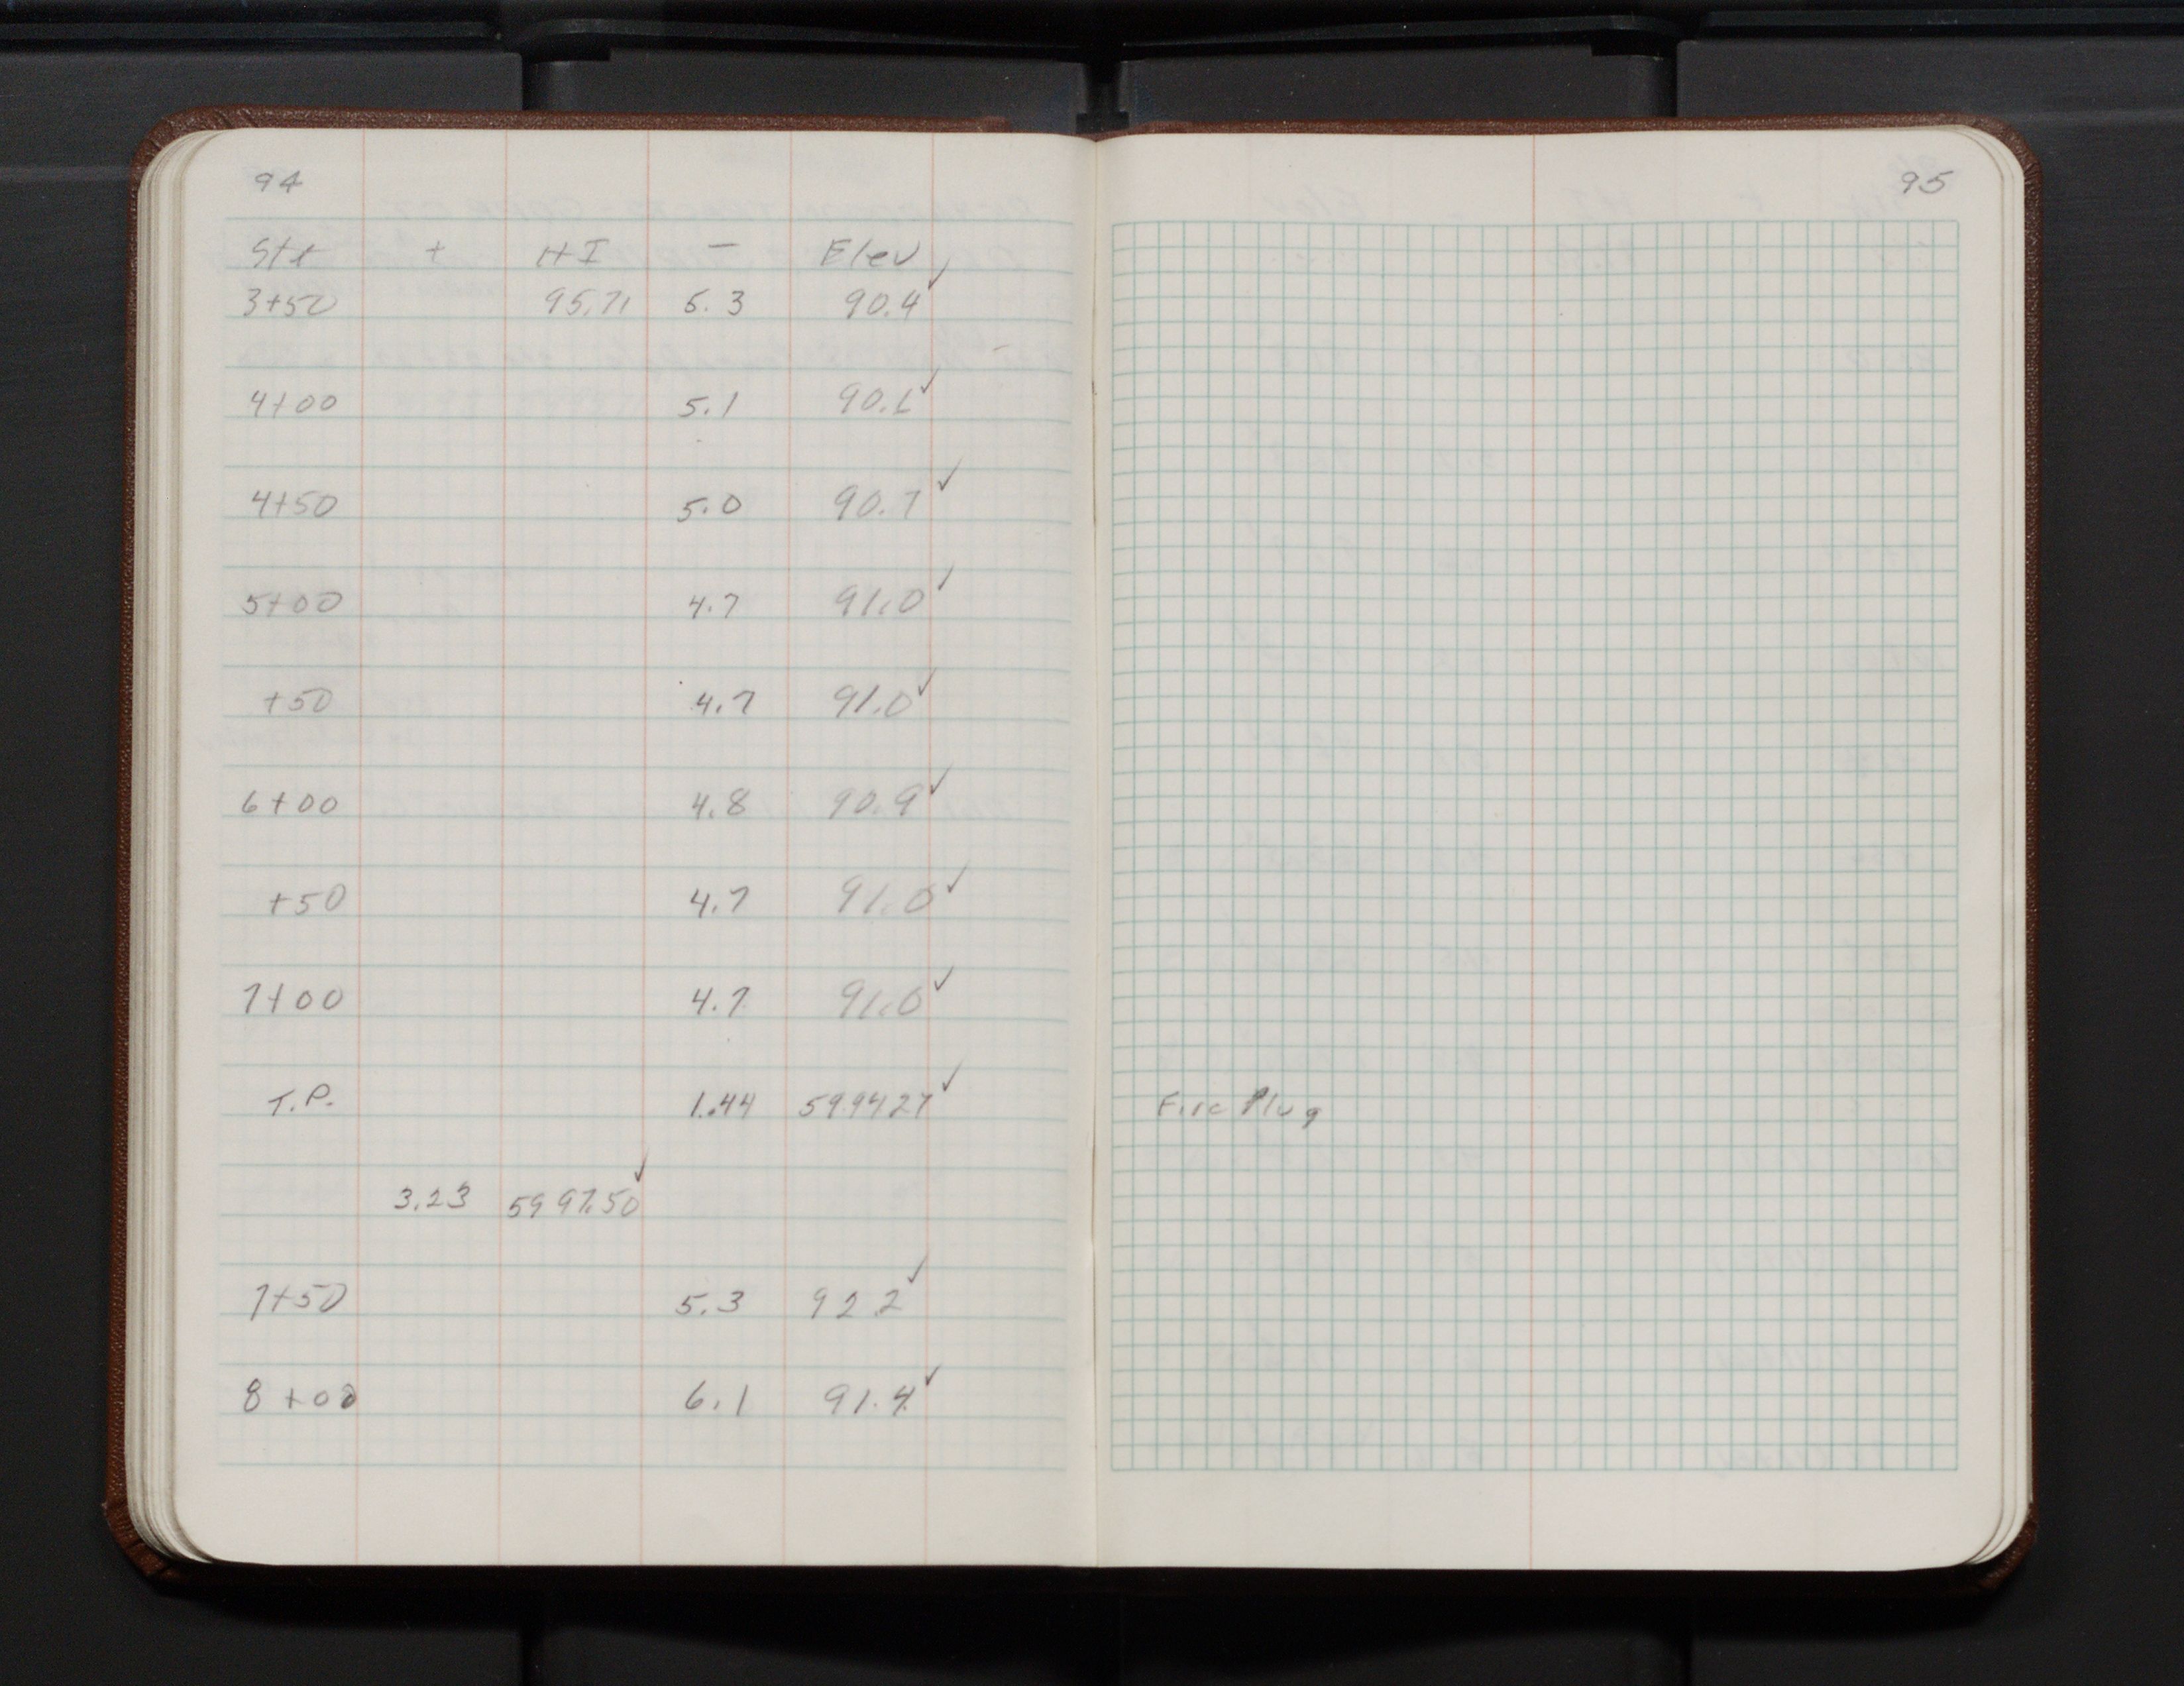 94
Sta + HI - Elev
3+50 95.71 5.3 90.4 ✓
4+00 5.1 90.6 ✓
4+50 5.0 90.7 ✓
5+00 4.7 91.0 ✓
+50 4.7 91.0 ✓
6+00 4.8 90.9 ✓
+50 4.7 91.0 ✓
7+00 4.7 91.0 ✓
T.P. 1.44 5994.27 ✓
3.23 5997.50 ✓
7+50 5.3 92.2 ✓
8+00 6.1 91.4 ✓
95
Fire Plug